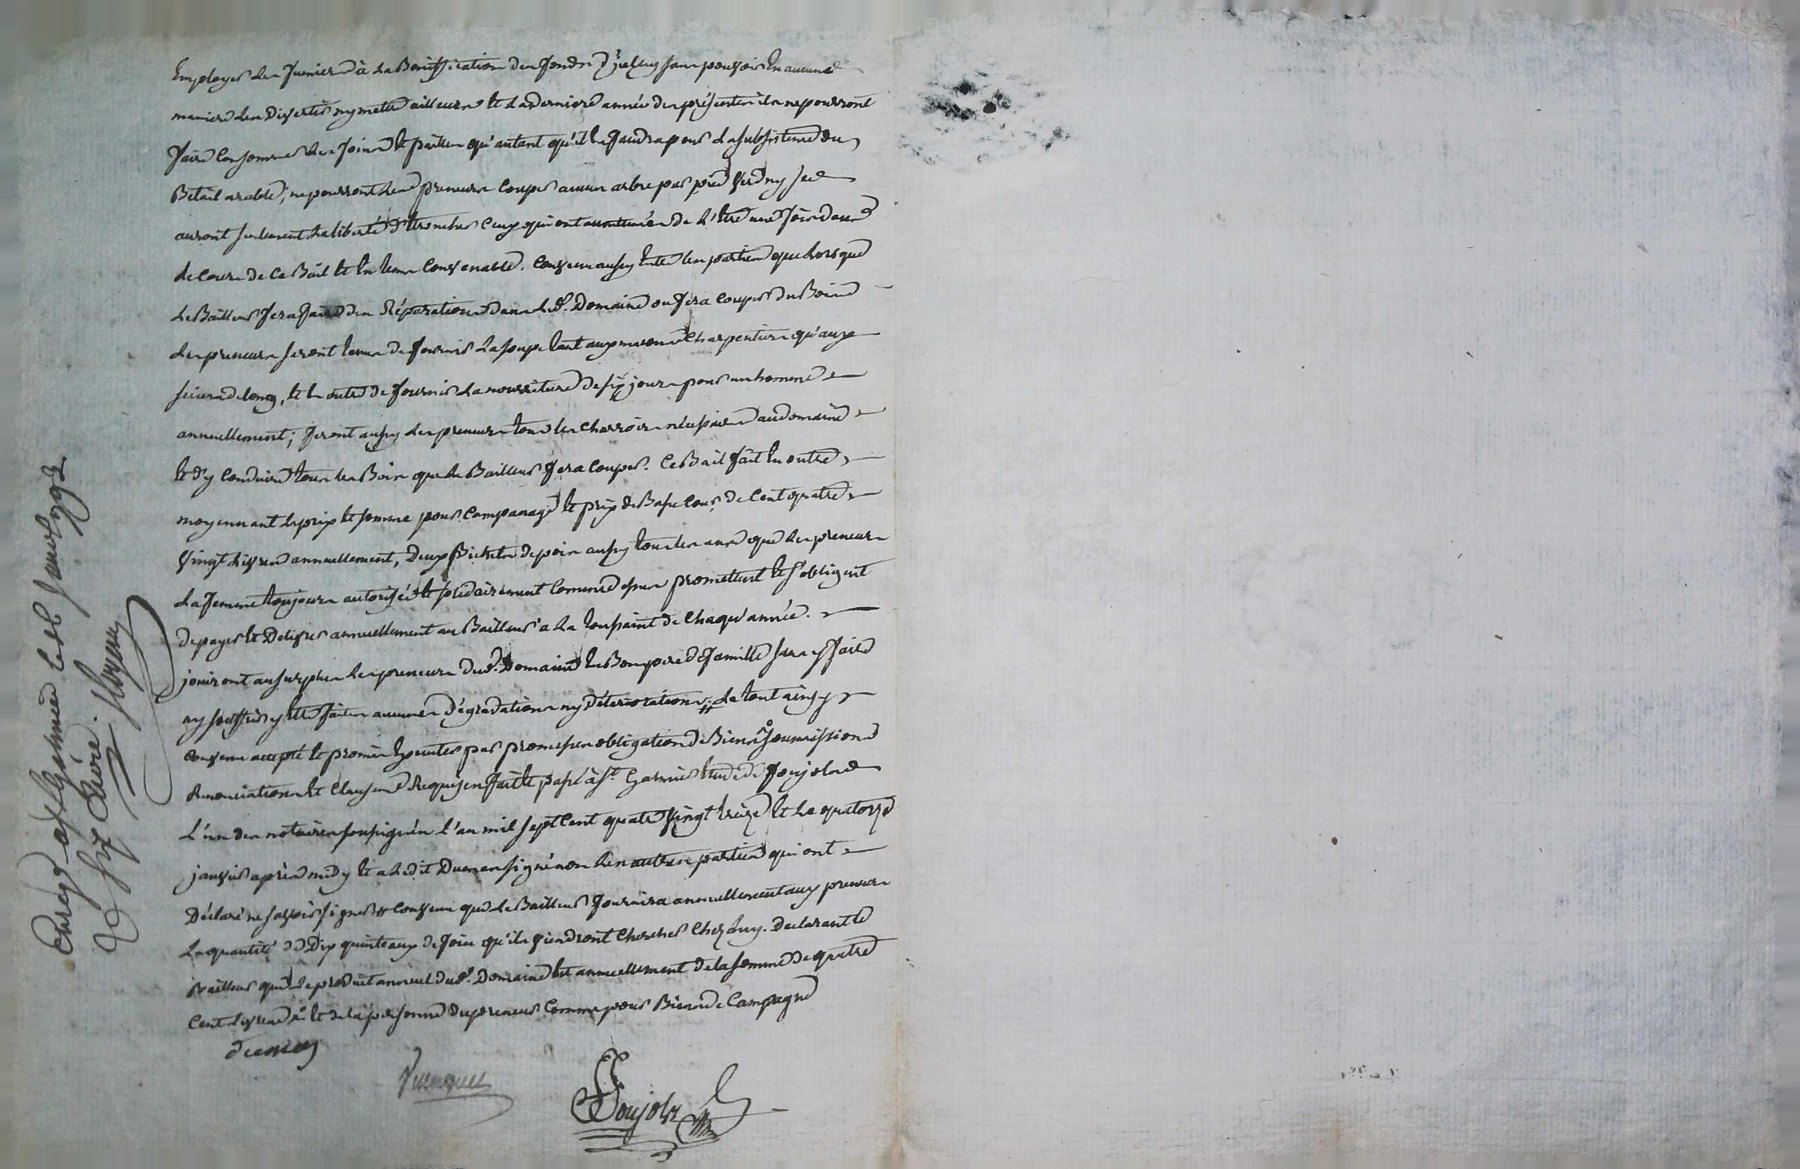 Employer les fumiers à la Bonnification des fonds d'iceluy sans pouvoir en aucune
maniere les divertir ny mettre ailleurs et la derniere année des présentes ils ne pourront
faire consommer des foins et pailles qu'autant qu'il en faudra pour la subsistance du
Bétail arable, ne pourront lesd preneurs couper aucun arbre par pied verd ny sec
auront seulement la liberté d'ébrancher ceux qui ont accoutumés de l'être une fois dans
le cours de ce Bail et en tems convenable. Convenu aussy entre les parties que lorsque
le Bailleur fera faire des Réparations dans led. Domaine ou fera couper du Bois
les preneurs seront tenus de fournir la soupe tant aux massons Charpentiers qu'aux
scieurs de long, et en outre de fournir la nourriture de six jours pour un homme
annuellement; feront aussy les preneurs tous les charrois nécessaires au domaine
et d'y conduire tous les Bois que le Bailleur fera couper. Ce Bail fait en outre
moyennant le prix et somme pour Companage et prix de Basse Cour de Cent quatre
vingt livres annuellement, deux Bichets de pois aussy tous les ans que les preneurs
la femme toujours autorisée et solidairement comme dessus promettent et s'obligent
de payer et délivrer annuellement au Bailleur à la Toussaint de chaqu'année.
jouiront au surplus les preneurs dud. Domaine en Bon pere de famille sans y faire
ny souffrir y être faites aucunes dégradations ny déteriorations # le tout ainsy
convenu accepté et promis executer par promesses obligation de Biens soumissions
Renonciations et clauses Requises fait et passé à St. étude de Soujols
L'un des notaires soussignés l'an mil sept cent quatre vingt treize et le quatorze
janvier après midy et a ledit Dumas signé non les autres parties qui ont
Déclaré ne sçavoir signer # convenu que le Bailleur fournira annuellement aux preneurs
la quantité de Dix quinteaux de foin qu'ils viendront chercher chez luy. Declarant le
Bailleur que le produit annuel dud. Domaine est annuellement de la somme de quatre
Cent livres et de la personne du preneur comme pour Biens de Campagne
dumas
Soujols